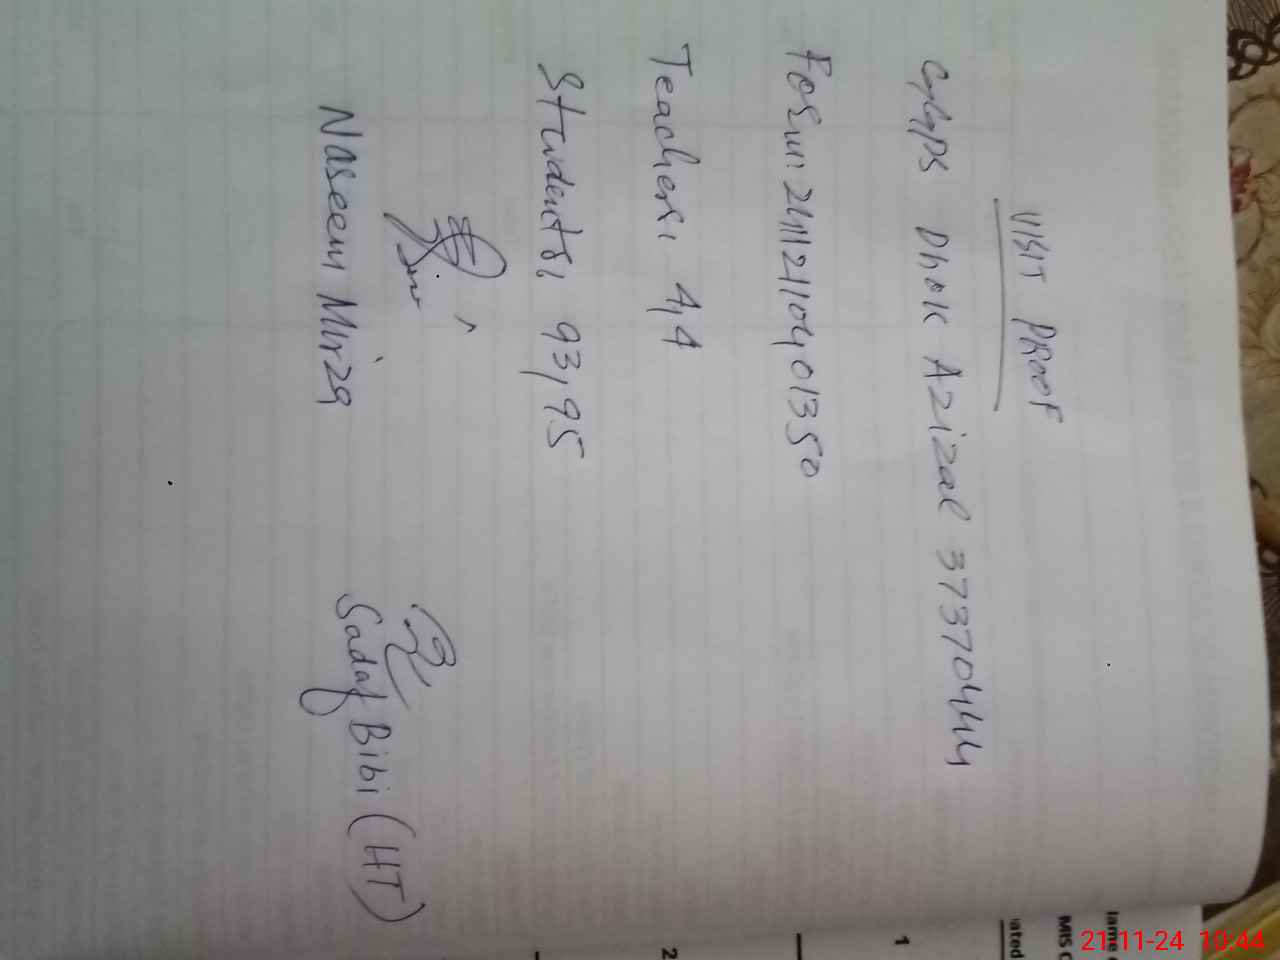 VISIT PROOF
GGPS Dhok Azizal 37370444
Form: 241121104,01350
Teachers: 4,4
Students: 93,95
Naseem Mirza
Sadaf Bibi (HT)
lame
MIS
ated
1
2
21-11-24 10:44